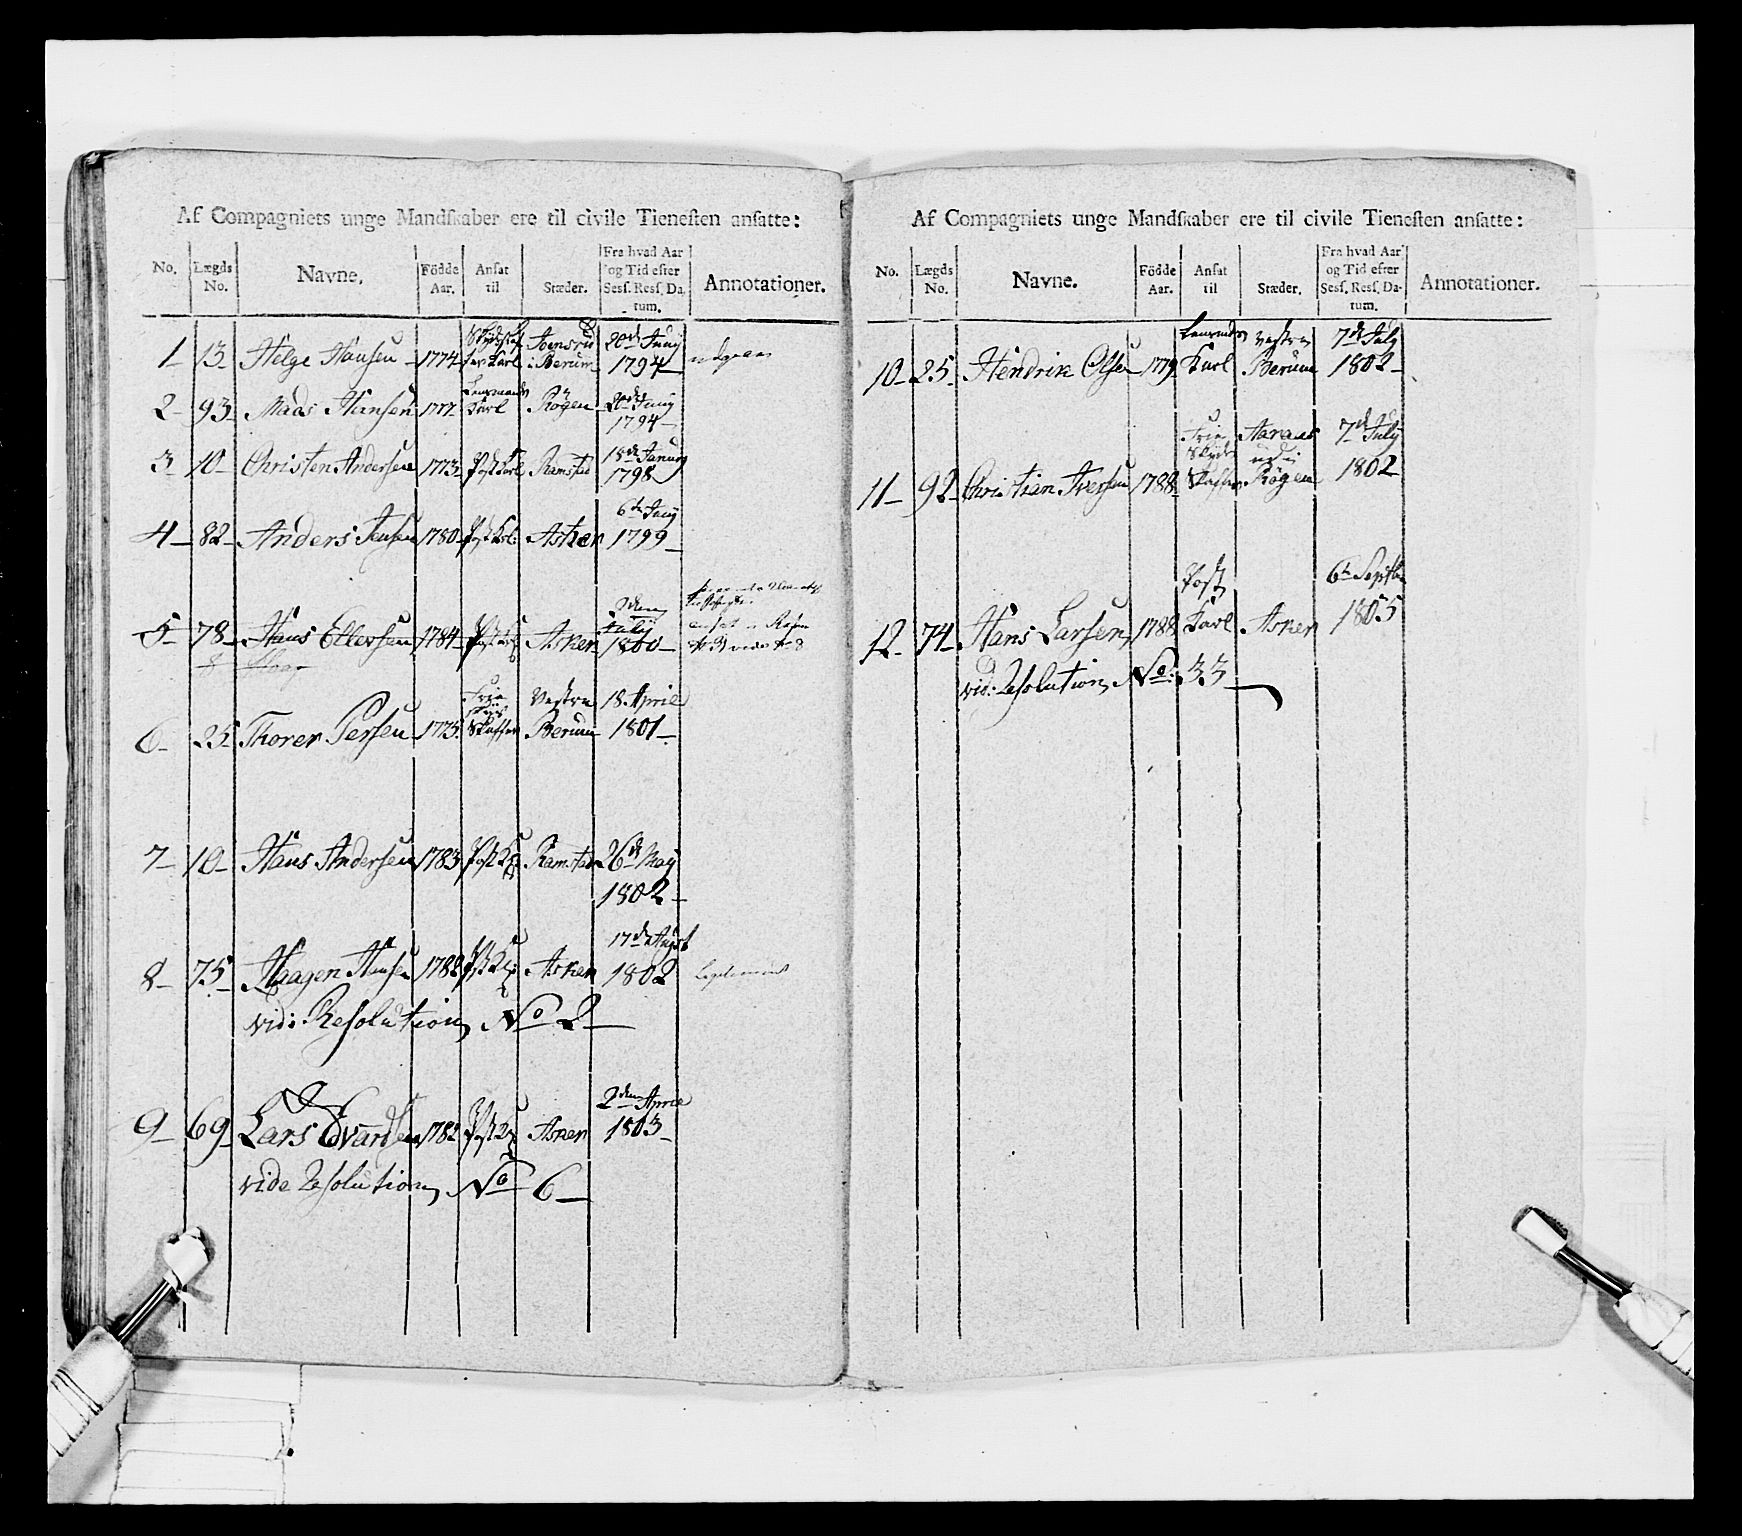 Af Compagniets unge Mandſkaber ere til civile Tieneſten anſatte:
No. Lægds No. Navne. Födde Aar. Anſat til Stæder. Fra hvad Aar og Tid efter Seſſ. Reſſ. Datum. Annotationer.
1 13 Helge Hansen 1774 Karl i Berum 20de Juny 1794
2 93 Mads Hansen 1777 Lensmands Karl Rögen 20de Juny 1794
3 10 Christen Andersen 1773 Post Karl Ramstad 18de January 1798
4 82 Anders Jensen 1780 Post Krl: Asker 6te Juny 1799
5 78 Hans Ellersen 1784 Asker 2den July 1800
6 25 Thorer Persen 1775 Frie Skaffer Vestre Berum 18 April 1801
7 10 Hans Andersen 1783 Post K Ramstad 26de May 1802
8 75 Haagen Hansen 1782 Post K Asker 17de August 1802
vid: Resolution No 2
9 69 Lars Edvardsen 1782 Post K Asker 2den April 1803
vide Resolution No 6
Af Compagniets unge Mandſkaber ere til civile Tieneſten anſatte:
No. Lægds No. Navne. Födde Aar. Anſat til Stæder. Fra hvad Aar og Tid efter Seſſ. Reſſ. Datum. Annotationer.
10 25 Hendrik Olsen 1779 Lensmands Karl Vestre Berum 7de July 1802
11 92 Christian Iversen 1788 Frie Skyds Skaffer Rögen 7de July 1802
12 74 Hans Larsen 1788 Post Karl Asker 6te Septbr 1805
vid: Resolution No: 33